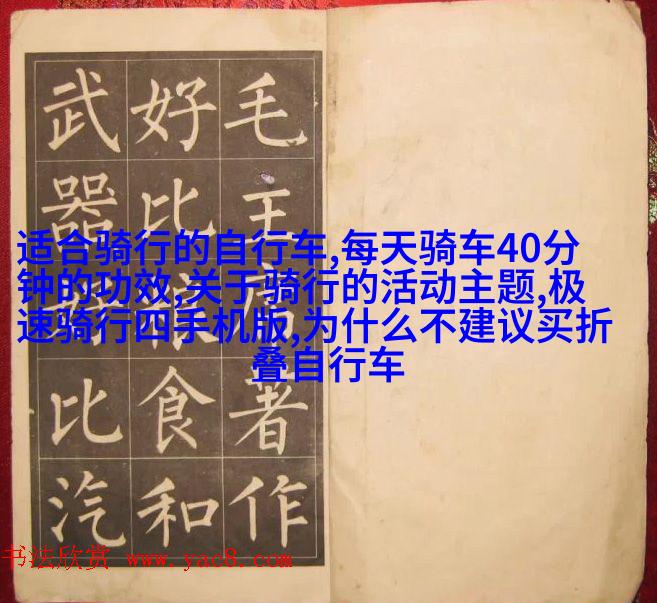 毛主席著作
好比粮食和
武器好比汽
适合骑行的自行车,每天骑车40分
钟的功效,关于骑行的活动主题,极
速骑行四手机版,为什么不建议买折
叠自行车
书法欣赏 www.yac8.com